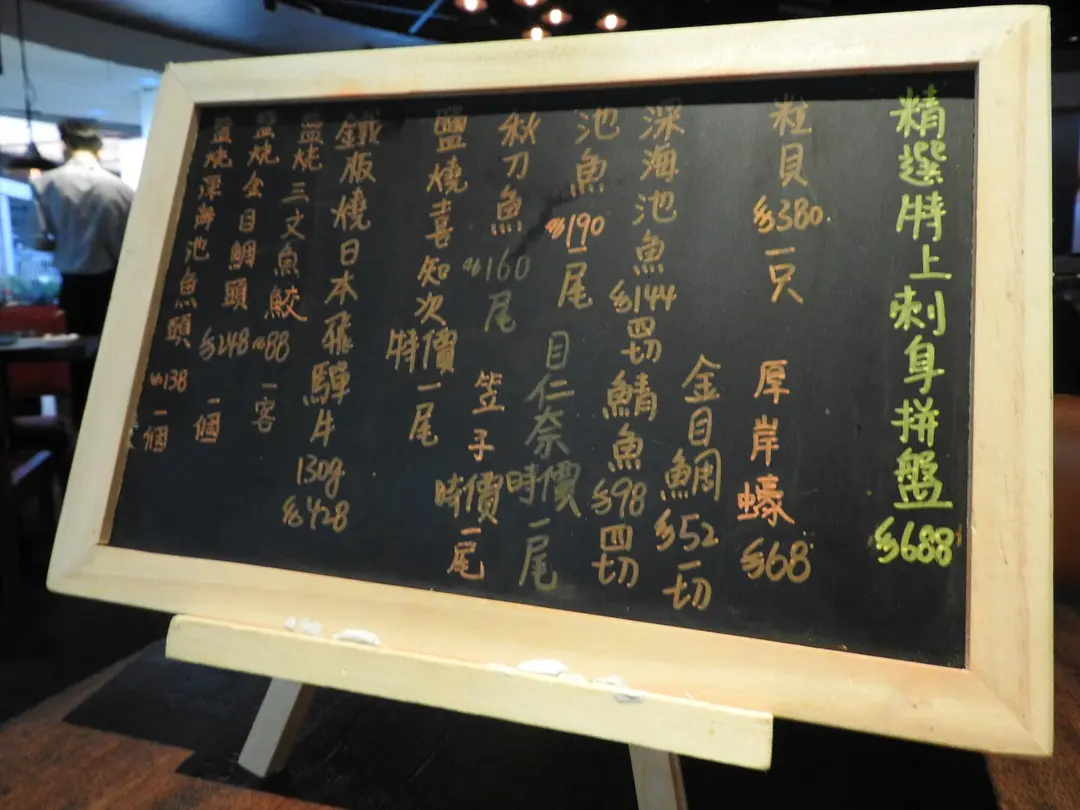 精選特上刺身拼盤 $688
粒貝 $380 一只
厚岸蠔 $68
深海池魚 $144 四切
金目鯛 $52 一切
池魚 $190 一尾
鯖魚 $98 四切
秋刀魚 $160 尾
目仁奈 時價 一尾
鹽燒喜知次 特價 一尾
笠子 時價 一尾
鐵板燒日本飛驒牛 130g $428
盐烧三文魚鮫 $88 一客
盐烧金目鯛頭 $248 一個
盐烧深海池魚頭 $138 一個